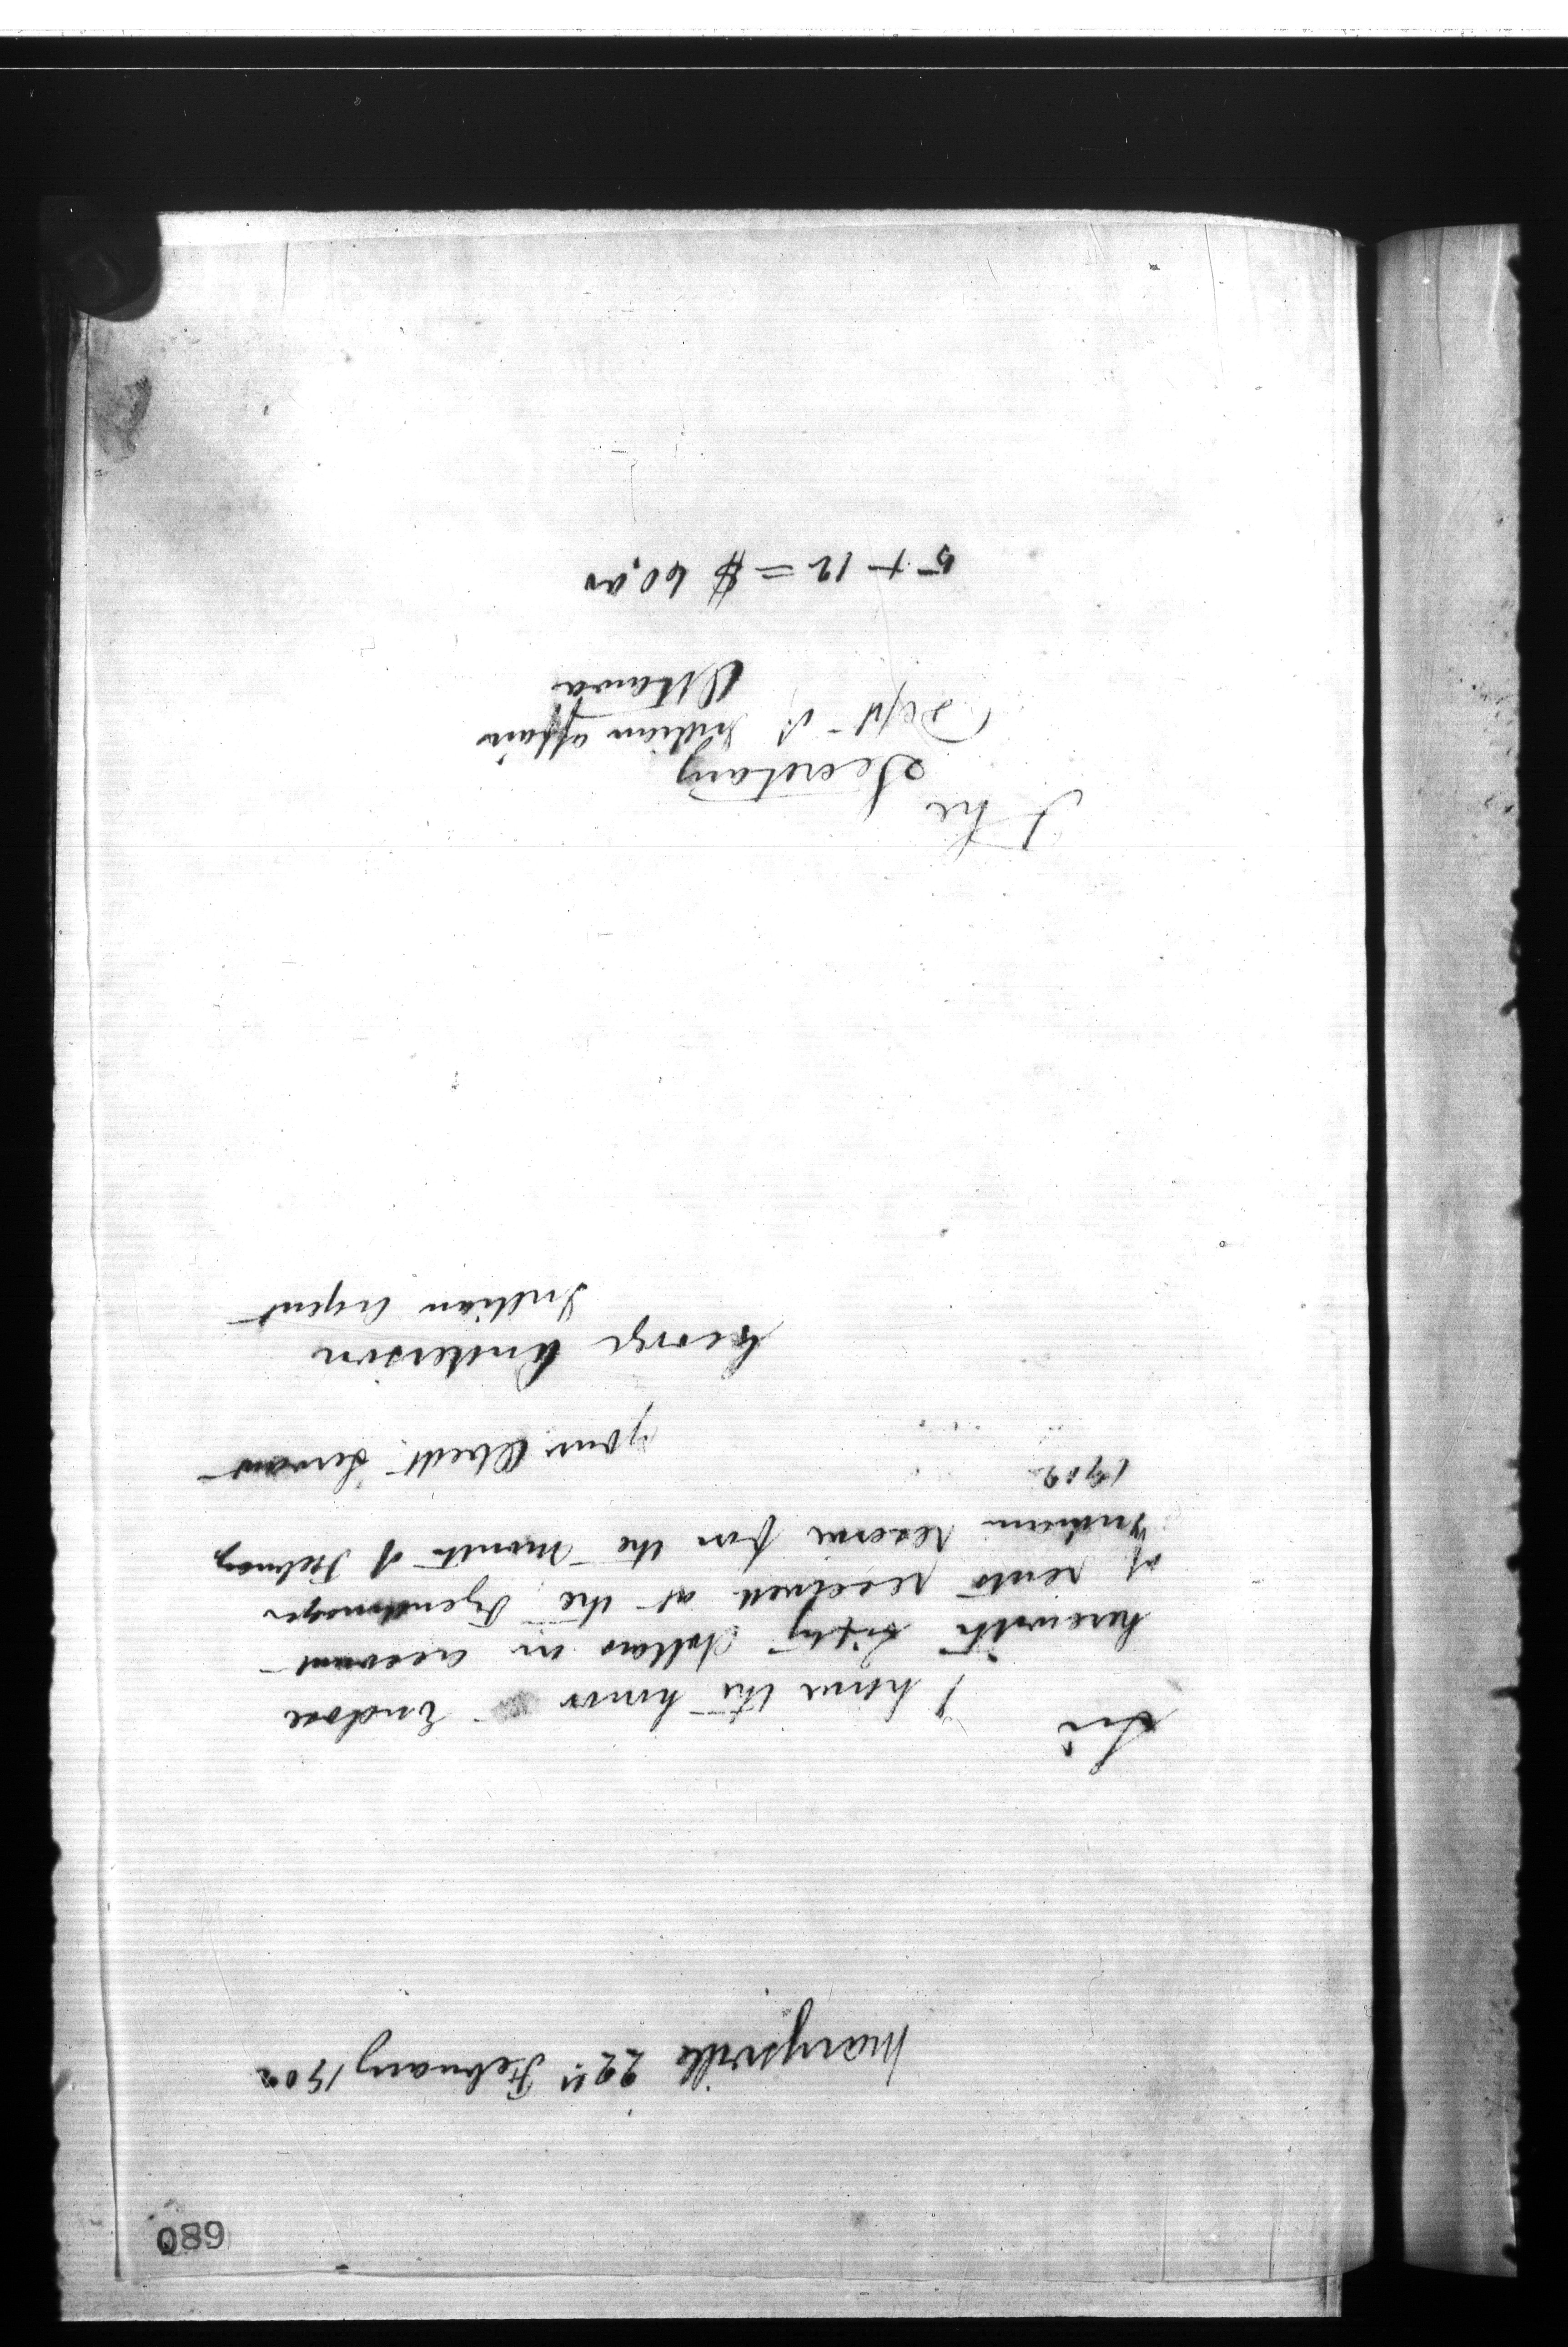 680
Marysville 22" February 1902
Sir
I have the honor Enclose
herewith sixty dollars on account
of rents received at the Tyendinaga
Indian reserve for the month of February
1902
your Obedt Servant
George Anderson
Indian Agent
The
Secretary
Dept of Indian affairs
Ottawa
5 + 12 = $ 60.00